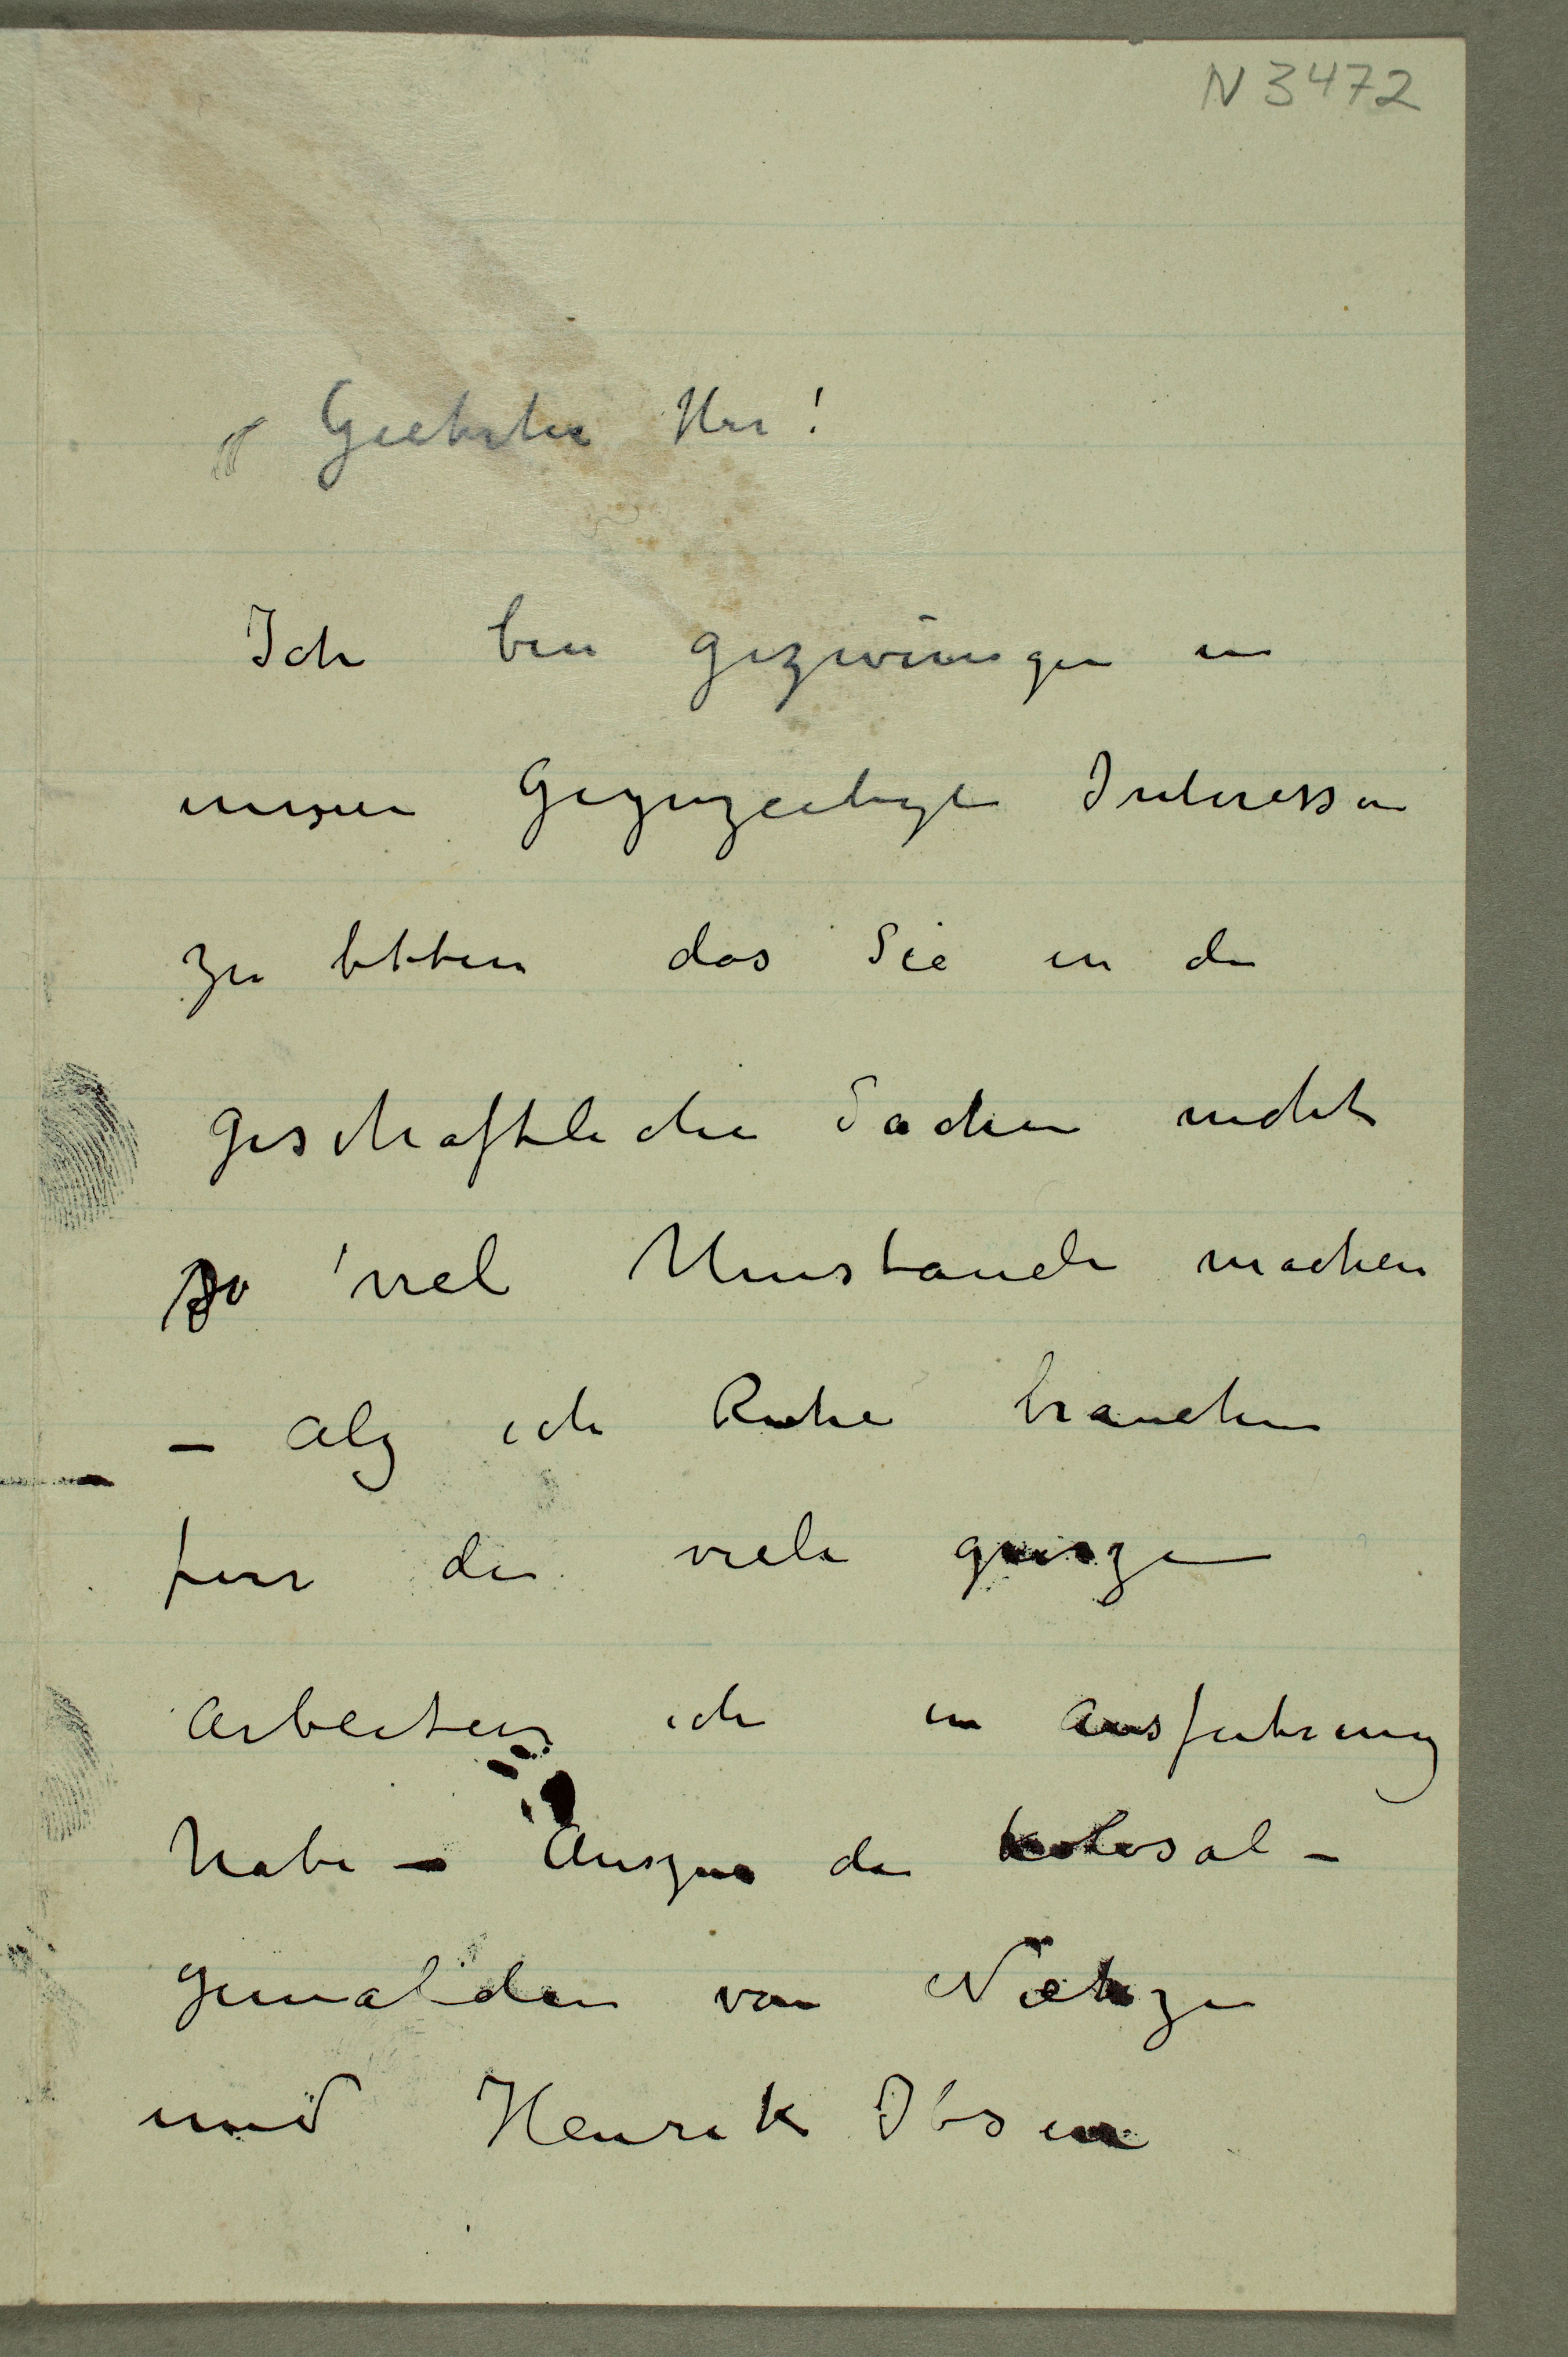 N 3472
Geehrter Herr!
Ich bin gezwůngen in
unsere Gegenzeitige Interessen
zu bitten das Sie in die
geschaftliche Sachen nicht
so viel Umstande machen
– alz ich Ruhe brauche
fur die viele groszen
Arbeiten ich in Ausfuhrung
habe – Auszer die kolosal-
gemalden von Nietze
und Henrik Ibsen